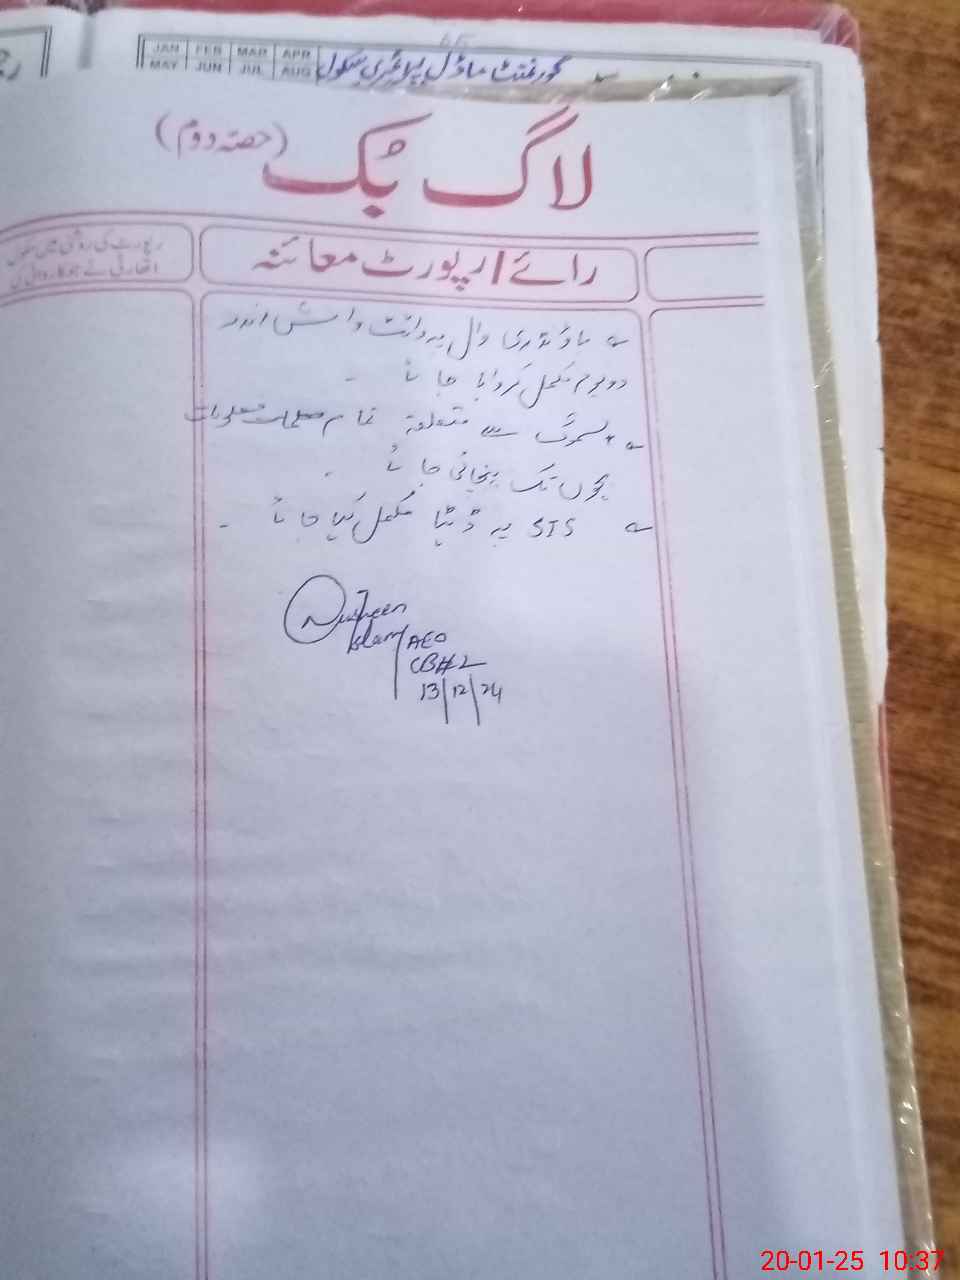 JAN FEB MAR APR
MAY JUN JUL AUG
گورنمنٹ ماڈل پرائمری سکول
لاگ بک (حصہ دوم)
رائے / رپورٹ معائنہ
رپورٹ کی روشنی میں
اتھارٹی نے جو کاروائی کی
باؤنڈری وال پر وائٹ واش اندر
مکمل کروایا جائے ۔
سموگ سے متعلقہ تمام معلومات
بچوں تک پہنچائی جائے ۔
STS پر ڈیٹا مکمل کیا جائے ۔
Nusheen
Islam AEO
CB#2
13/12/24
20-01-25 10:37